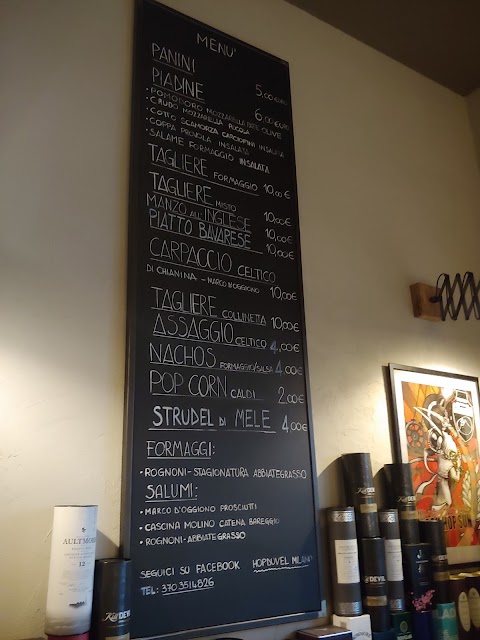 MENU'
PANINI 5,00 EURO
PIADINE 6,00 EURO
• POMODORO MOZZARELLA PATE OLIVE
• CRUDO MOZZARELLA RUCOLA
• COTTO SCAMORZA CARCIOFINI INSALATA
• COPPA PROVOLA INSALATA
• SALAME FORMAGGIO INSALATA
TAGLIERE FORMAGGIO 10,00€
TAGLIERE MISTO 10,00€
MANZO ALL'INGLESE 10,00€
PIATTO BAVARESE 10,00€
CARPACCIO CELTICO
DI CHIANINA - MARCO D'OGGIONO 10,00€
TAGLIERE COLLINETTA 10,00€
ASSAGGIO CELTICO 4,00€
NACHOS FORMAGGIO/SALSA 4,00€
POP CORN CALDI 2,00€
STRUDEL DI MELE 4,00€
FORMAGGI:
• ROGNONI - STAGIONATURA ABBIATEGRASSO
SALUMI:
• MARCO D'OGGIONO PROSCIUTTI
• CASCINA MOLINO CATENA BAREGGIO
• ROGNONI - ABBIATEGRASSO
SEGUICI SU FACEBOOK HOPDUVEL MILANO
TEL: 370 3514826
AULTMORE
12
DEVIL